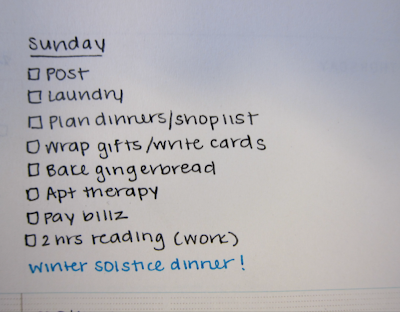 Sunday
☐ Post
☐ Laundry
☐ Plan dinners/shop list
☐ Wrap gifts/write cards
☐ Bake gingerbread
☐ Apt therapy
☐ Pay billz
☐ 2 hrs reading (work)
Winter solstice dinner!